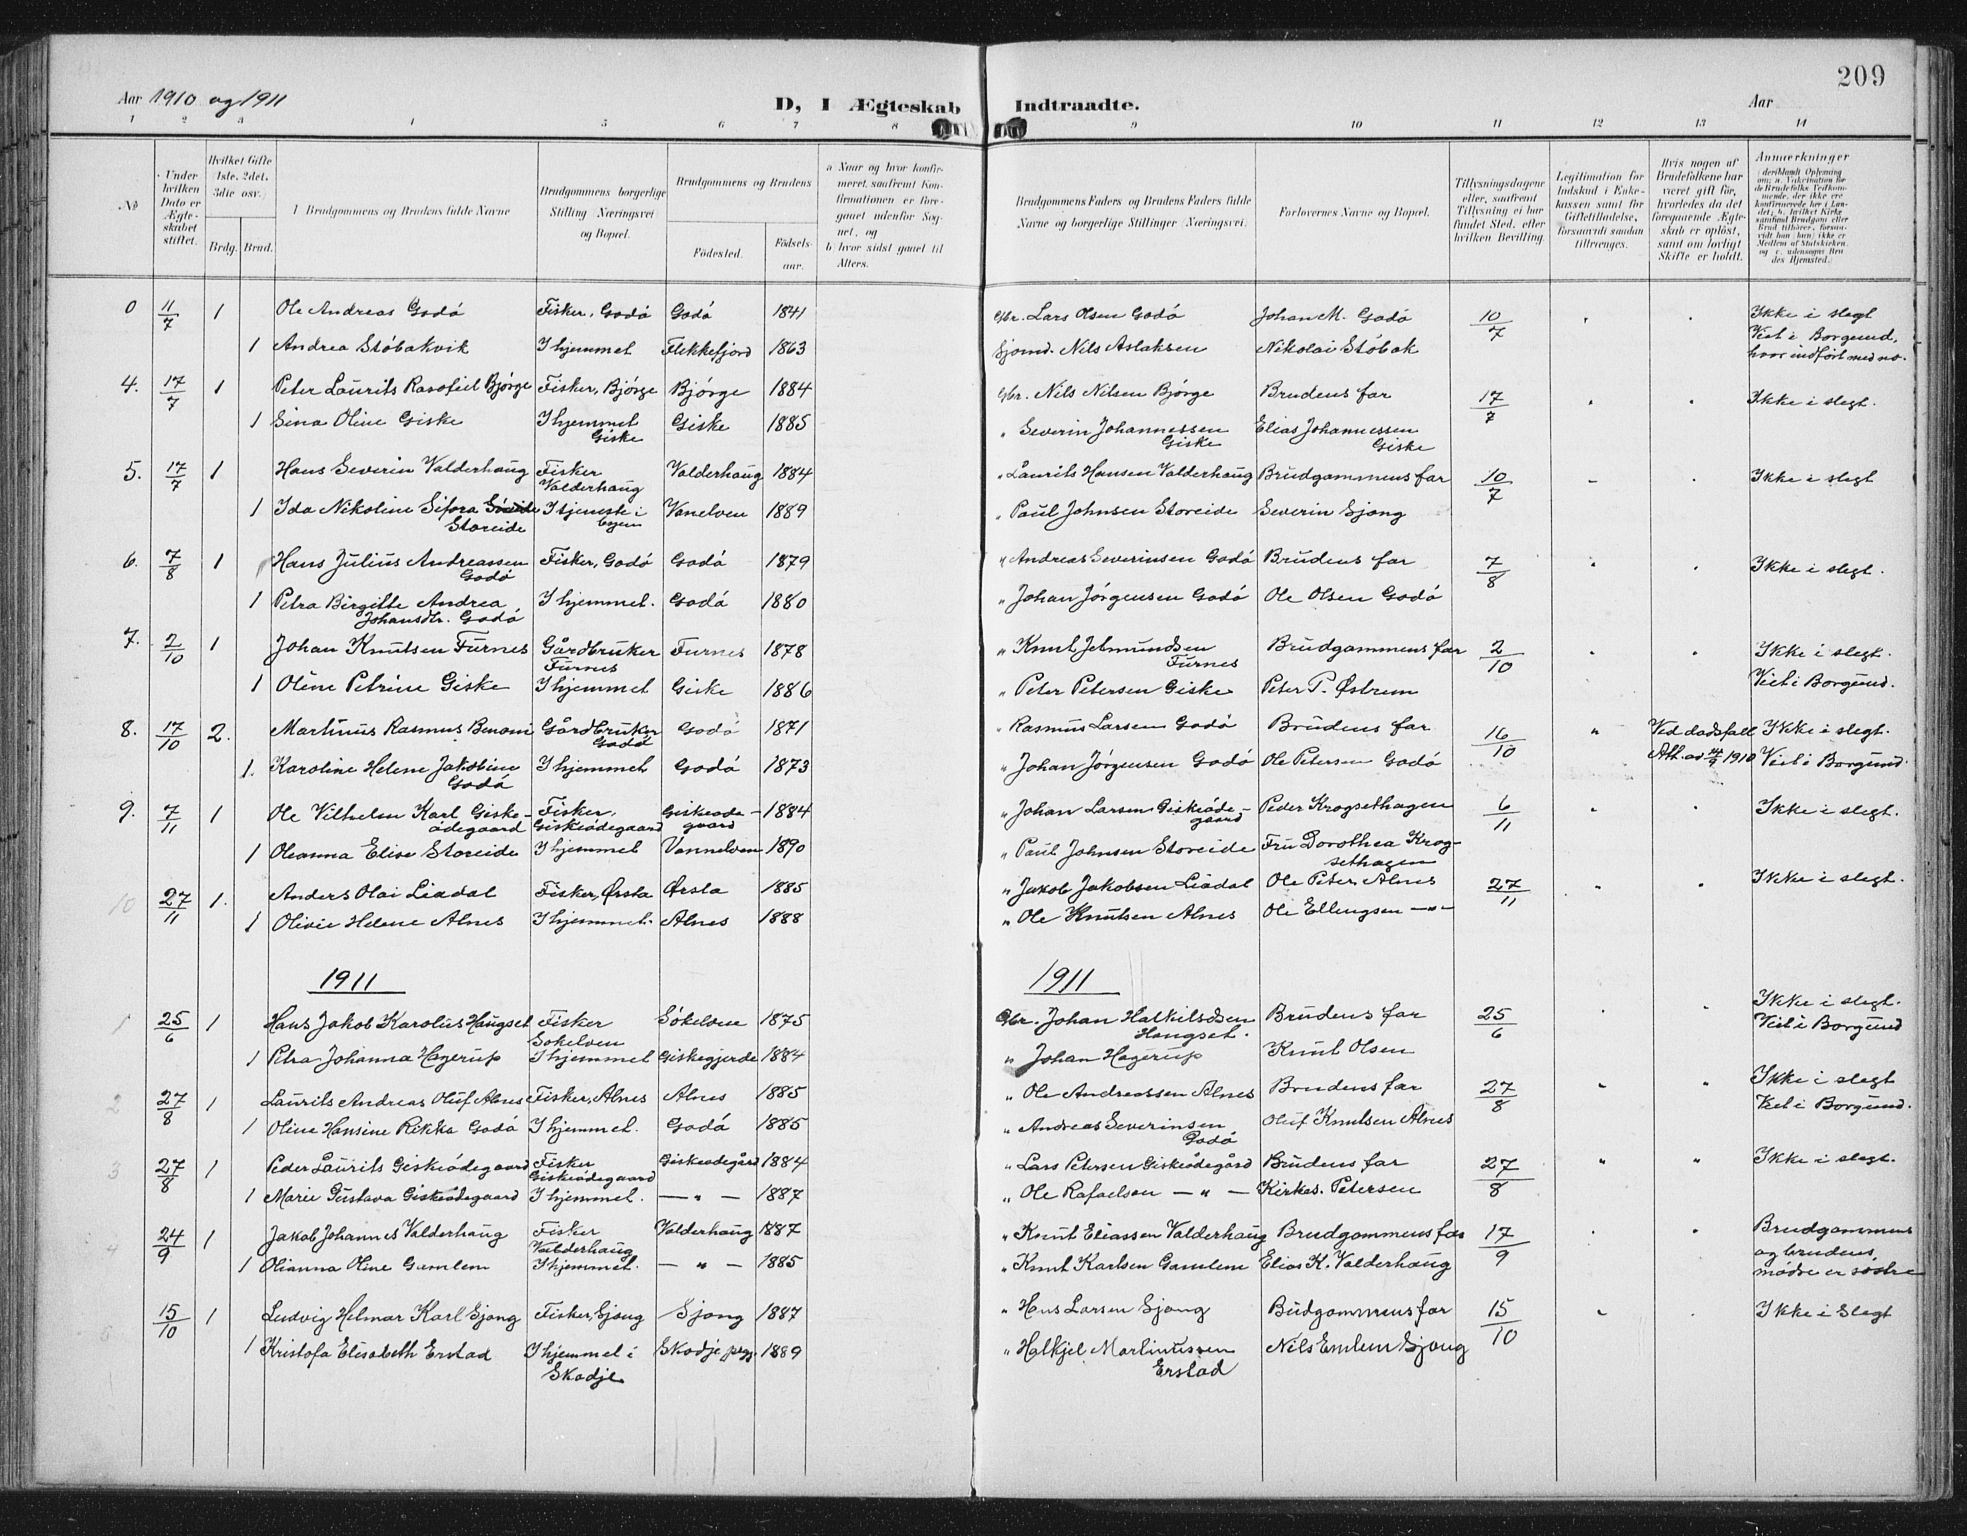 209
Aar 1910 og 1911
D, I Ægteskab Indtraadte.
Aar
1 2 3 4 5 6 7 8 9 10 11 12 13 14
№
Under hvilken Dato er Ægteskabet stiftet.
Hvilket Gifte 1ste, 2det, 3die osv.
Brdg. Brud.
Brudgommens og Brudens fulde Navne
Brudgommens borgerlige Stilling Næringsvei og Bopæl.
Brudgommens og Brudens
Fødested.
Fødselsaar.
a Naar og hvor konfirmeret, saafremt Konfirmationen er foregaaet udenfor Sognet, og
b hvor sidst gaaet til Alters.
Brudgommens Faders og Brudens Faders fulde Navne og borgerlige Stillinger (Næringsvei.
Forlovernes Navne og Bopæl.
Tillysningsdagene eller, saafremt Tillysning ei har fundet Sted, efter hvilken Bevilling.
Legitimation for Indskud i Enkekassen samt for Giftetilladelse, forsaavidt saadan tiltrænges.
Hvis nogen af Brudefolkene har været gift før, hvorledes da det foregaaende Ægteskab er opløst, samt om lovligt Skifte er holdt.
Anmærkninger
11/7 1 Ole Andreas Godö Fisker, Godö Godö 1841 Gbr. Lars Olsen Godö Johan M. Godö 10/7 Ikke i slegt
1 Andrea Stöbakvik I hjemmet Flekkefjord 1863 Sjömd. Nils Aslaksen Nikolai Stöbak Viet i Borgund, hvor indfört med no.
4. 17/7 1 Peter Laurits Rasofiel Bjørge Fisker, Bjørge Bjørge 1884 Gbr. Nils Nilsen Bjørge Brudens far 17/7 Ikke i slegt.
1 Sina Oline Giske I hjemmet Giske Giske 1885 " Severin Johannessen Giske Elias Johannessen Giske
5. 17/7 1 Hans Severin Valderhaug Fisker Valderhaug Valderhaug 1884 " Laurits Hansen Valderhaug Brudgommens far 10/7 Ikke i slegt
1 Ida Nikoline Sifora Storeide I tjeneste i byen Vanelven 1889 " Paul Johnsen Storeide Severin Sjong
6. 7/8 1 Hans Julius Andreassen Godö Fisker, Godö Godö 1879 " Andreas Severinsen Godö Brudens far 7/8 Ikke i slegt.
1 Petra Birgitte Andrea Johansdtr. Godö I hjemmet. Godö 1880 " Johan Jørgensen Godö Ole Olsen Godö
7. 2/10 1 Johan Knutsen Furnes Gårdbruker Furnes Furnes 1878 " Knut Jetmundsen Furnes Brudgommens far 2/10 Ikke i slegt.
1 Oline Petrine Giske I hjemmet Giske 1886 " Peter Petersen Giske Peter P. Østrem Viet i Borgund.
8. 17/10 2. Martinus Rasmus Benoni Gårdbruker Godö Godö 1871 " Rasmus Larsen Godö Brudens far 16/10 " Ved dødsfall Ikke i slegt.
1. Karoline Helene Jakobine Godö I hjemmet Godö 1873 " Johan Jørgensen Godö Ole Petersen Godö 1910 Viet i Borgund.
9. 7/11 1 Ole Vilhelm Karl Giskeødegaard Fisker, Giskeødegaard Giskeødegaard 1884 " Johan Larsen Giskeødegaard Peder Krogsethagen 6/11 Ikke i slegt.
1 Oleanna Elise Storeide I hjemmet Vannelven 1890 " Paul Johnsen Storeide Fru Dorothea Krogsethagen
10 27/11 1. Anders Olai Liadal Fisker, Ørsta Ørsta 1885 " Jakob Jakobsen Liadal Ole Peter Alnes 27/11 Ikke i slegt.
1 Olivie Helene Alnes I hjemmet. Alnes 1888 " Ole Knutsen Alnes Ole Ellingsen — " —
1911 1911
1 25/6 1 Hans Jakob Karolus Haugset Fisker Sökelven Sökelven 1875 Gbr. Johan Halkilsdsen Haugset. Brudens far 25/6 Ikke i slegt.
1 Petra Johanna Hagerup I hjemmet Giskegjerde 1884 " Johan Hagerup Knut Olsen Viet i Borgund
2 27/8 1 Laurits Andreas Oluf Alnes Fisker, Alnes Alnes 1885 " Ole Andreassen Alnes Brudens far 27/8 " " Ikke i slegt
1 Oline Hansine Rikka Godö I hjemmet. Godö 1885 " Andreas Severinsen Godö Oluf Knutsen Alnes Viet i Borgund.
3 27/8 1 Peder Laurits Giskeødegaard Fisker Giskeødegaard Giskeødegård 1884 " Lars Petersen Giskeødegård Brudens far 27/8 " " Ikke i slegt.
1 Marie Gustava Giskeødegaard I hjemmet. — " — 1887 " Ole Rafaelsen — " — Kirkes. Petersen
4 24/9 1 Jakob Johannes Valderhaug Fisker Valderhaug Valderhaug 1887 " Knut Eliassen Valderhaug Brudgommens far 17/9 Brudgommens og brudens mødre er søstre
1 Olianna Oline Gamlem I hjemmet. — " — 1885 " Knut Karlsen Gamlem Elias K. Valderhaug
5 15/10 1 Ludvig Helmar Karl Sjong Fisker, Sjong Sjong 1887 " Hans Larsen Sjong Budgommens far 15/10 " Ikke i Slegt
1 Kristofa Elisabeth Erstad I hjemmet i Skodje Skodje prgj. 1889 " Halkjel Martinussen Erstad Nils Emlem Sjong